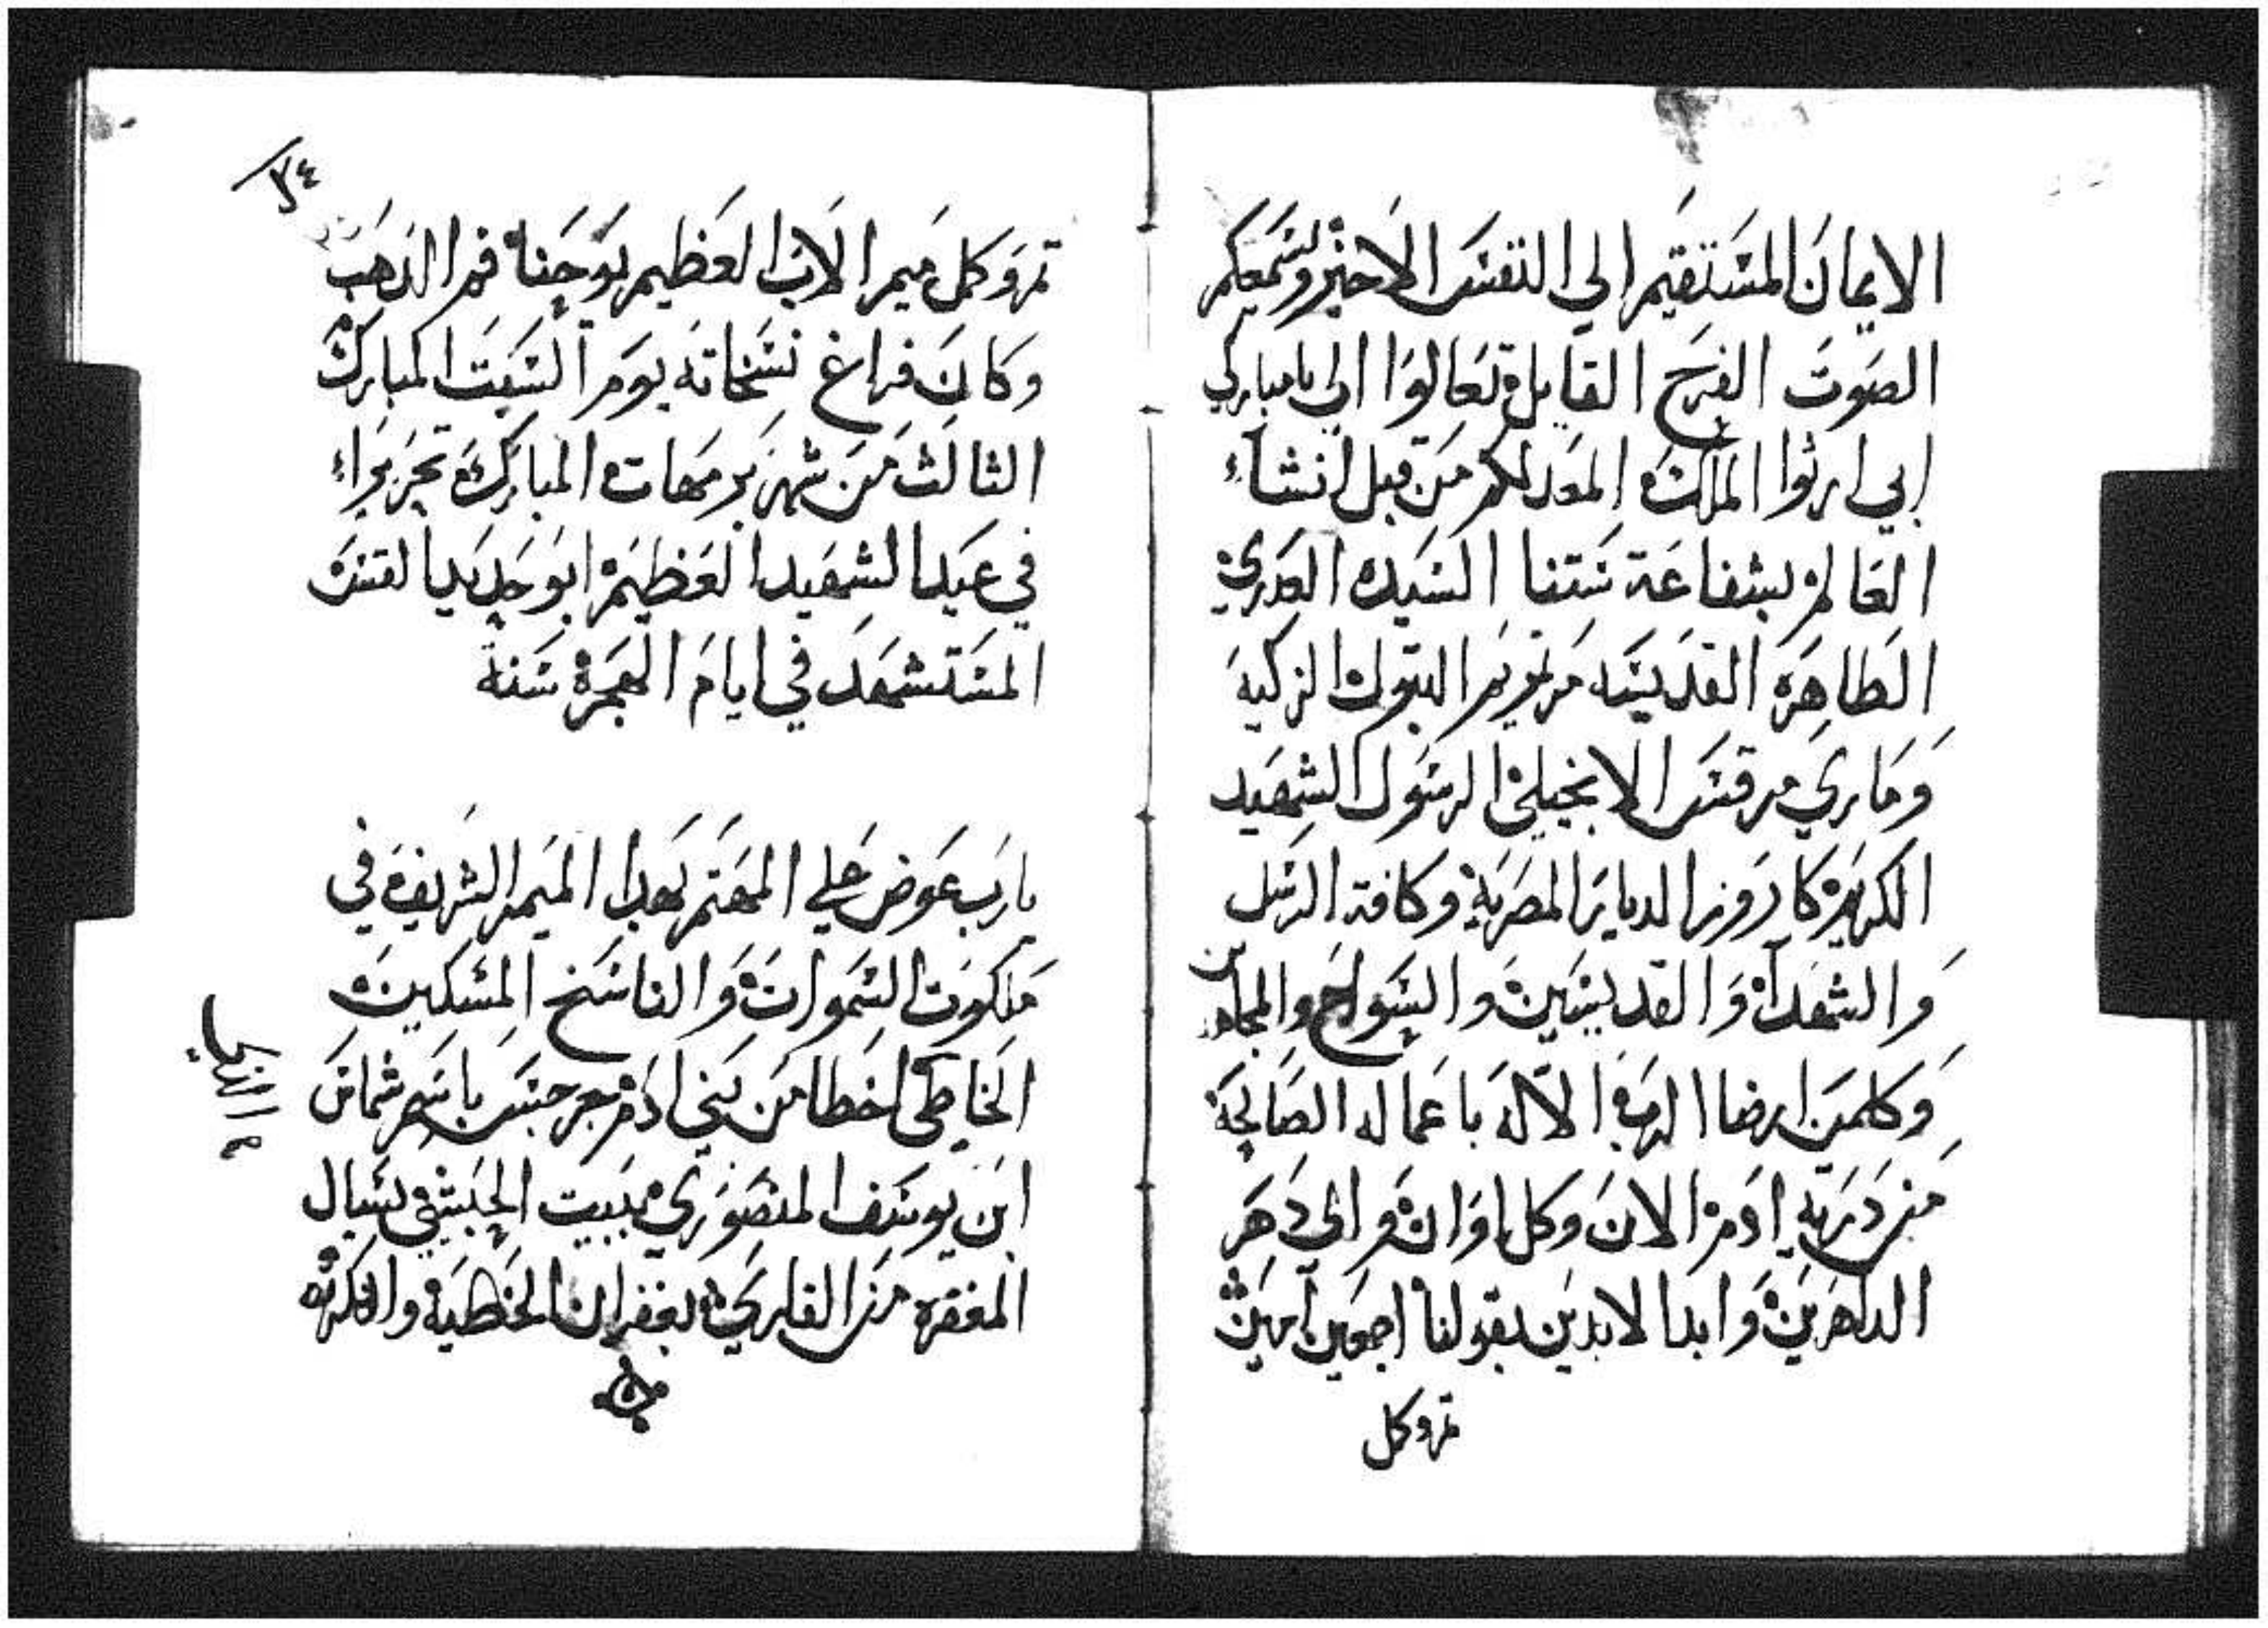 الايمان المستقيم الي النفس الاخير ويسمعكم
الصوت الفرح القايل تعالوا الي يا مباركي
ابي ارثوا الملك المعد لكم من قبل انشاء
العالم بشفاعة ستنا السيده العدري
الطاهره القديسه مرتمريم البتول الزكيه
وماري مرقس الانجيلي الرسول الشهيد
الكريم كاروز الديار المصريه وكافة الرسل
والشهدآ والقديسين والسواح والمجاهدين
وكلمن ارضا الرب الاله باعماله الصالحة
من دريه ادم الان وكل اوان والي دهر
الداهرين وابد الابدين بقولنا اجمعين آمين
تم وكمل
٣٤
تم وكمل ميمر الاب العظيم يوحنا فم الدهب
وكان فراغ نسخاته يوم السبت المبارك
الثالث من شهر برمهات المبارك تحريراء
في عيد الشهيد العظيم ابو حديد القس
المستشهد في ايام الهجرة سنة
يارب عوض علي المهتم بهدا الميمر الشريف في
ملكوت السموات والناسخ المسكين
الخاطي اخطا من بني ادم جرجس باسم شماس
ابن يوسف المنصوري ببيت الحبشي يسال
المغفره من القاري بغفران الخطيه